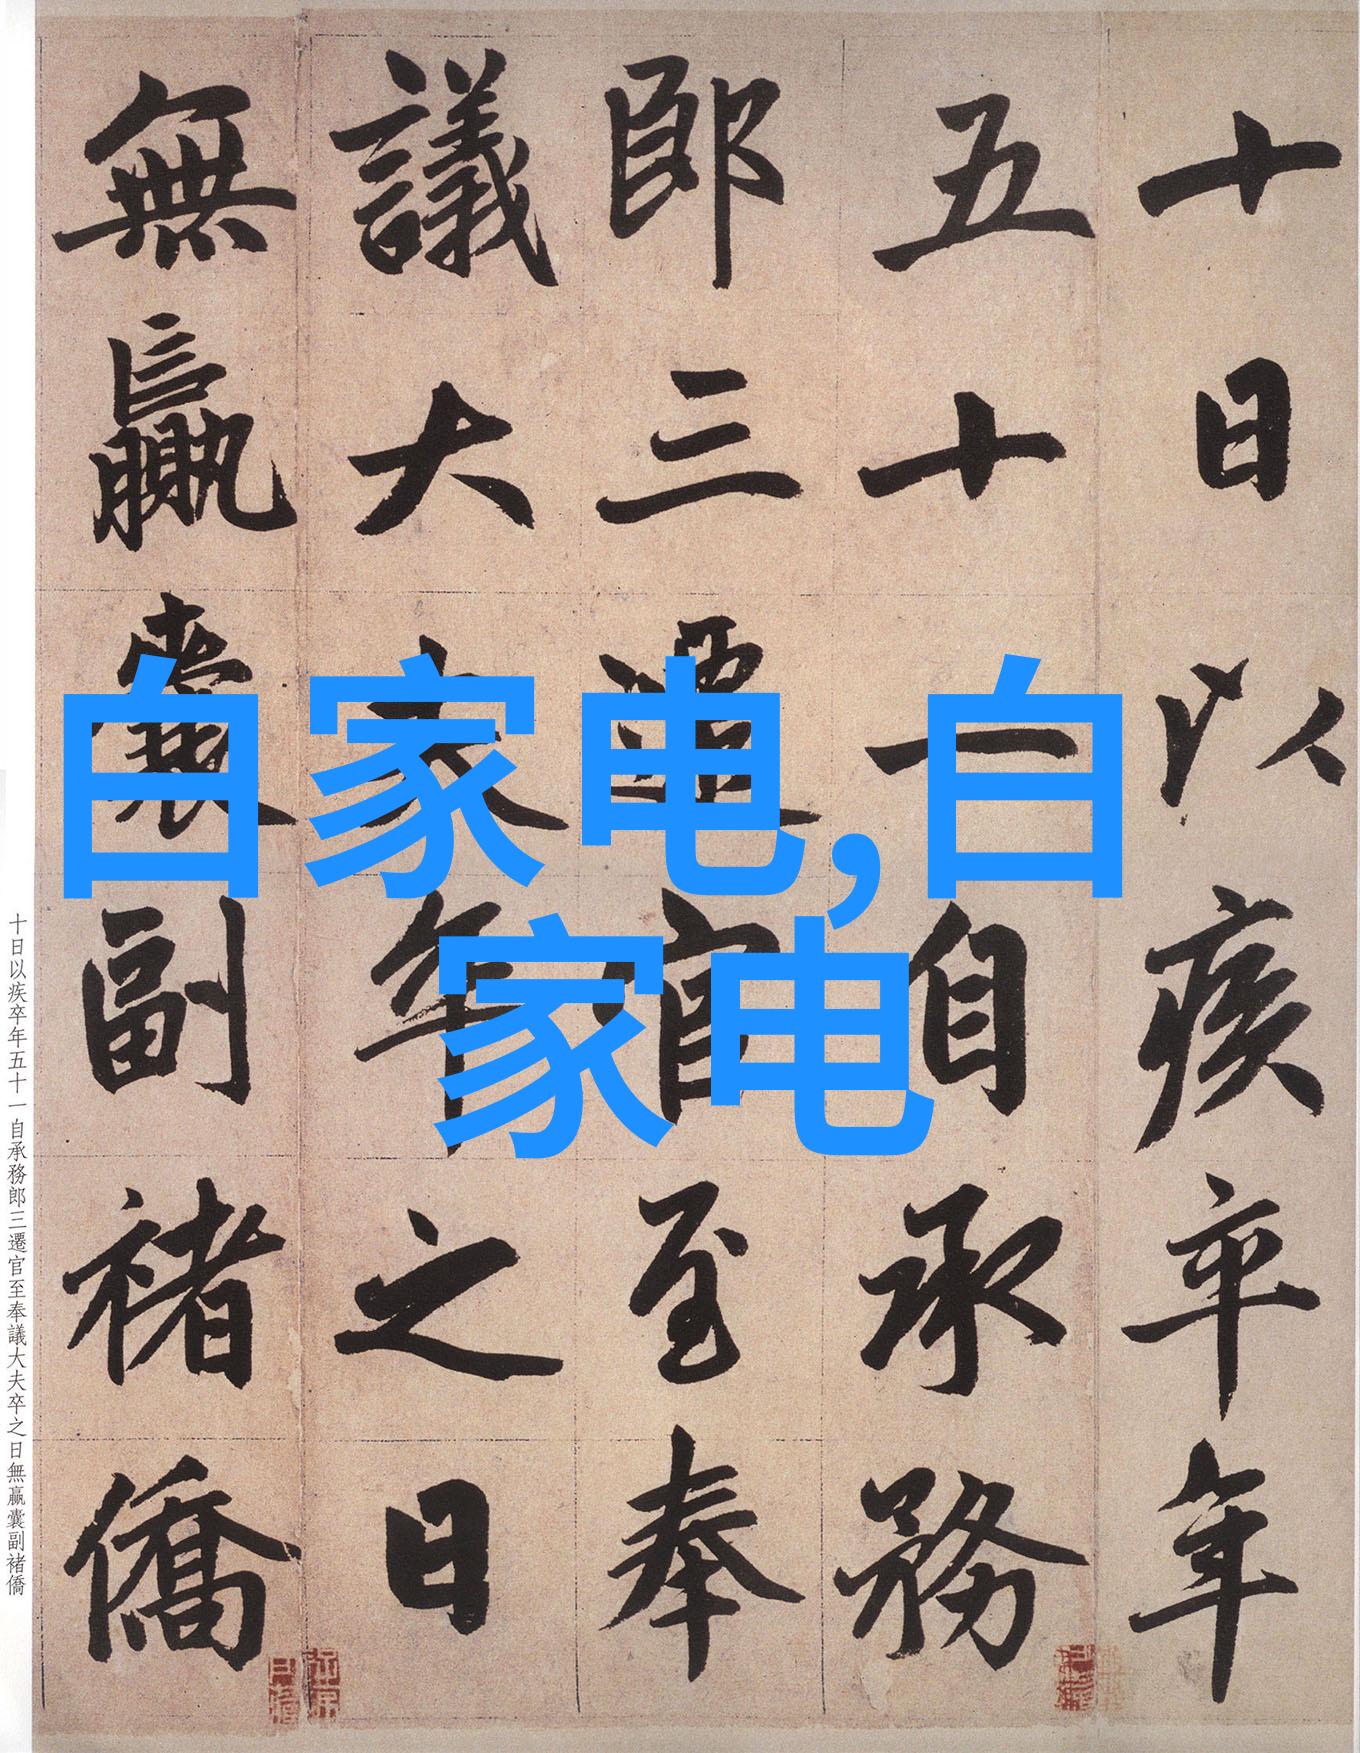 十日以疾卒年
五十一自承務
郎三遷官至奉
議大夫卒之日
無贏囊副褚僑
白家电,白
家电
十日以疾卒年五十一自承務郎三遷官至奉議大夫卒之日無贏囊副褚僑